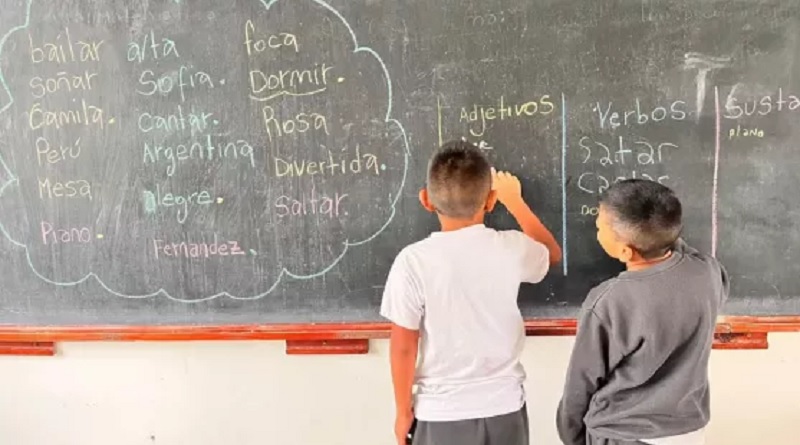 bailar alta foca
Soñar Sofía. Dormir.
Camila. Cantar. Rosa
Perú Argentina Divertida.
Mesa alegre. Saltar.
Piano. Fernandez.
Adjetivos
Verbos
Satar
Susta
piano